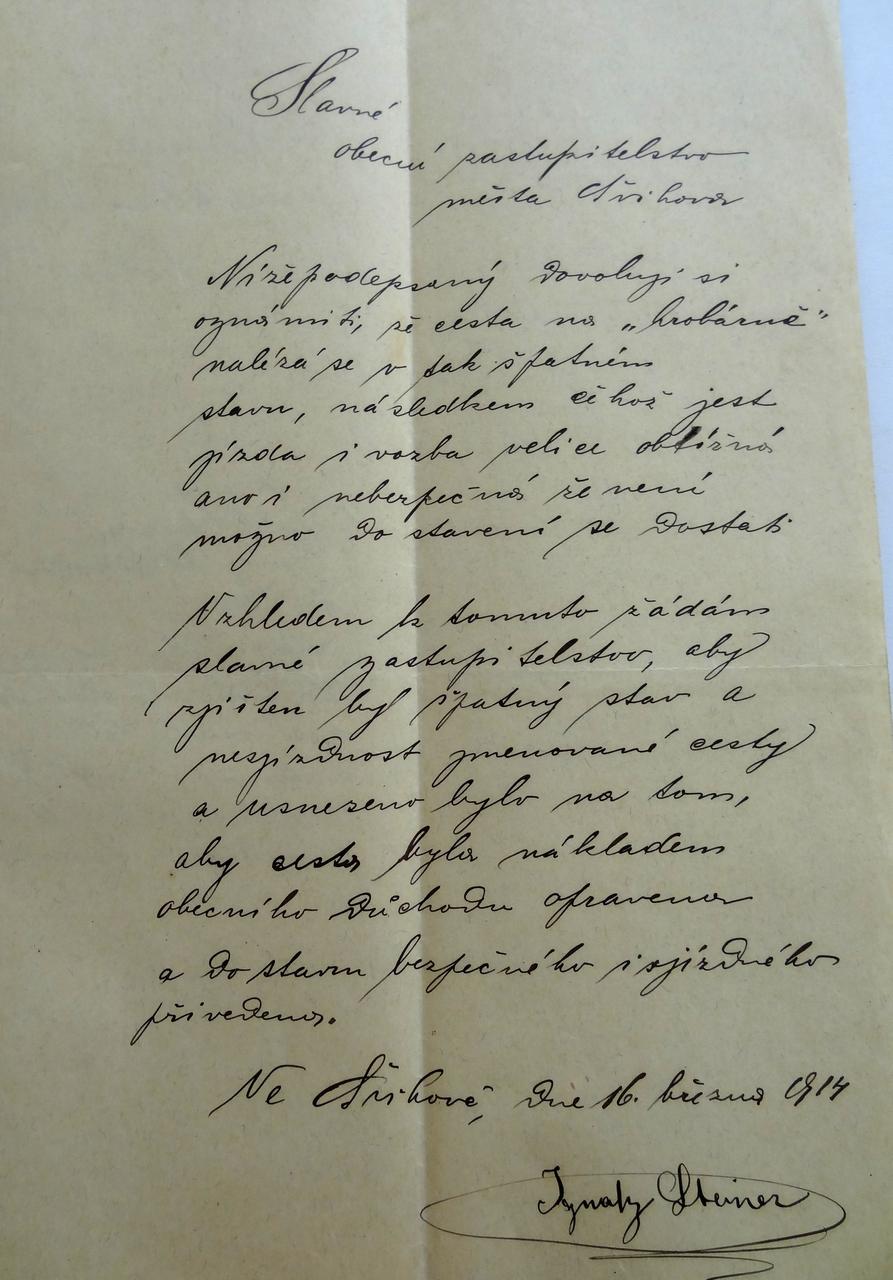 Slavné
obecní zastupitelstvo
města Švihova
Nížepodepsaný dovoluji si
oznámiti, že cesta na „hrobárně“
nalézá se v tak špatném
stavu, následkem čehož jest
jízda i vozba velice obtížná
ano i nebezpečná že není
možno do stavení se dostati
Vzhledem k tomuto žádám
slavné zastupitelstvo, aby
zjišten byl špatný stav a
nesjízdnost jmenované cesty
a usneseno bylo na tom,
aby cesta byla nákladem
obecního důchodu opravena
a do stavu bezpečného i sjízdného
přivedena.
Ve Švihově, dne 16. března 1914
Ignatz Steiner